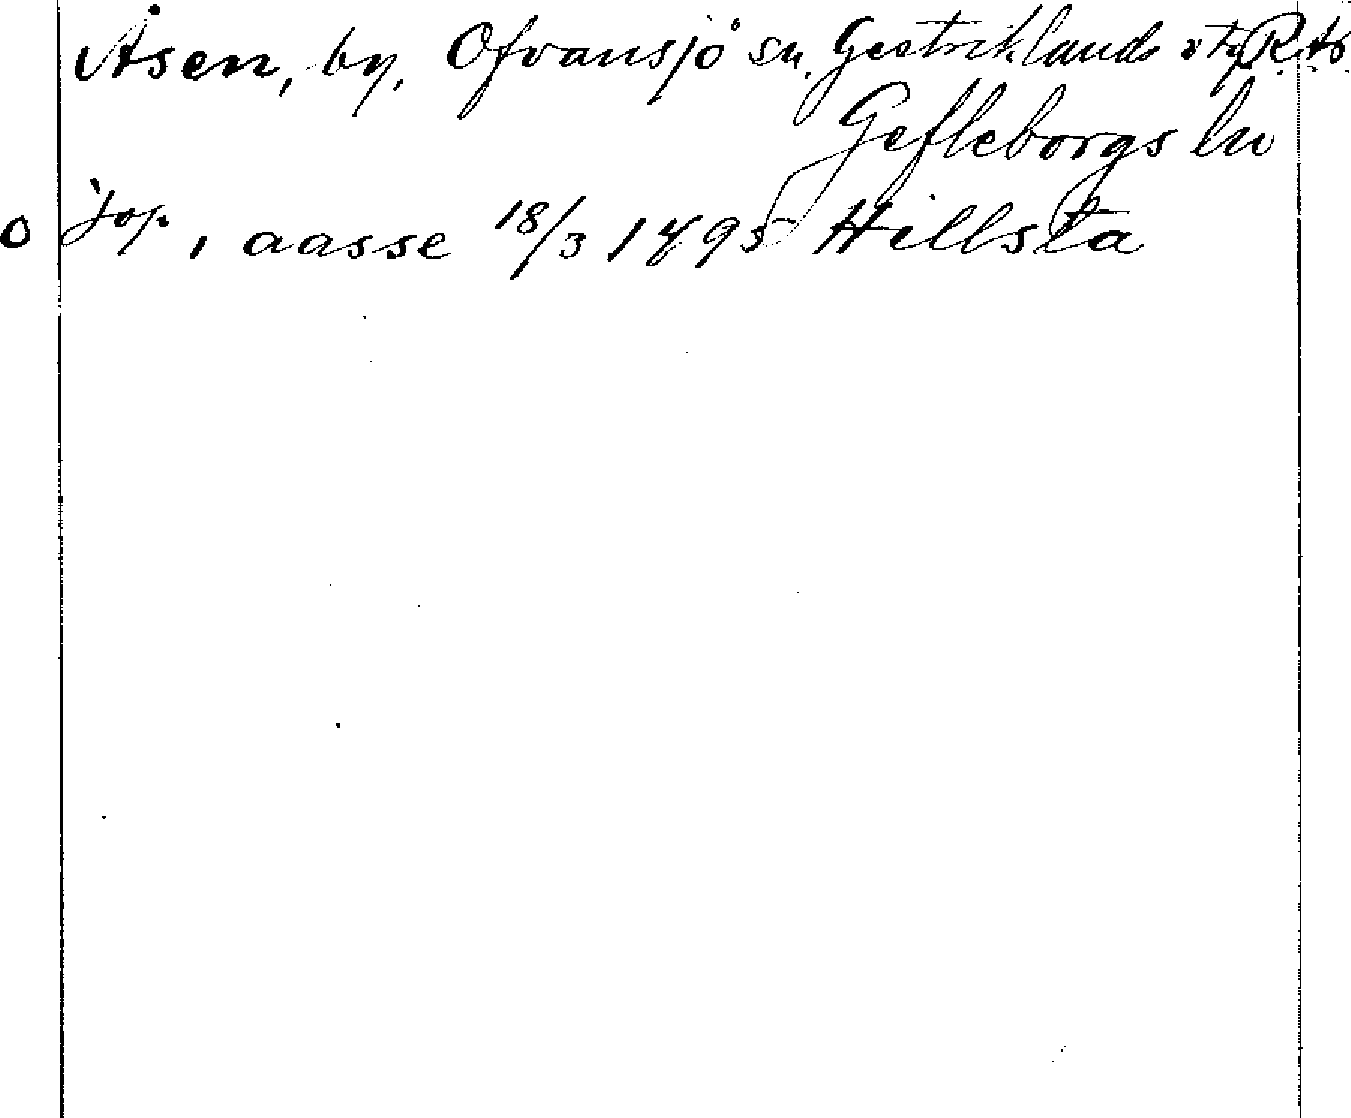 Åsen, by, Ofvansjö sn, Gestriklands v tg R. As.
Gefleborgs län
O Jop, i aasse 18/3 1495 Hillsta